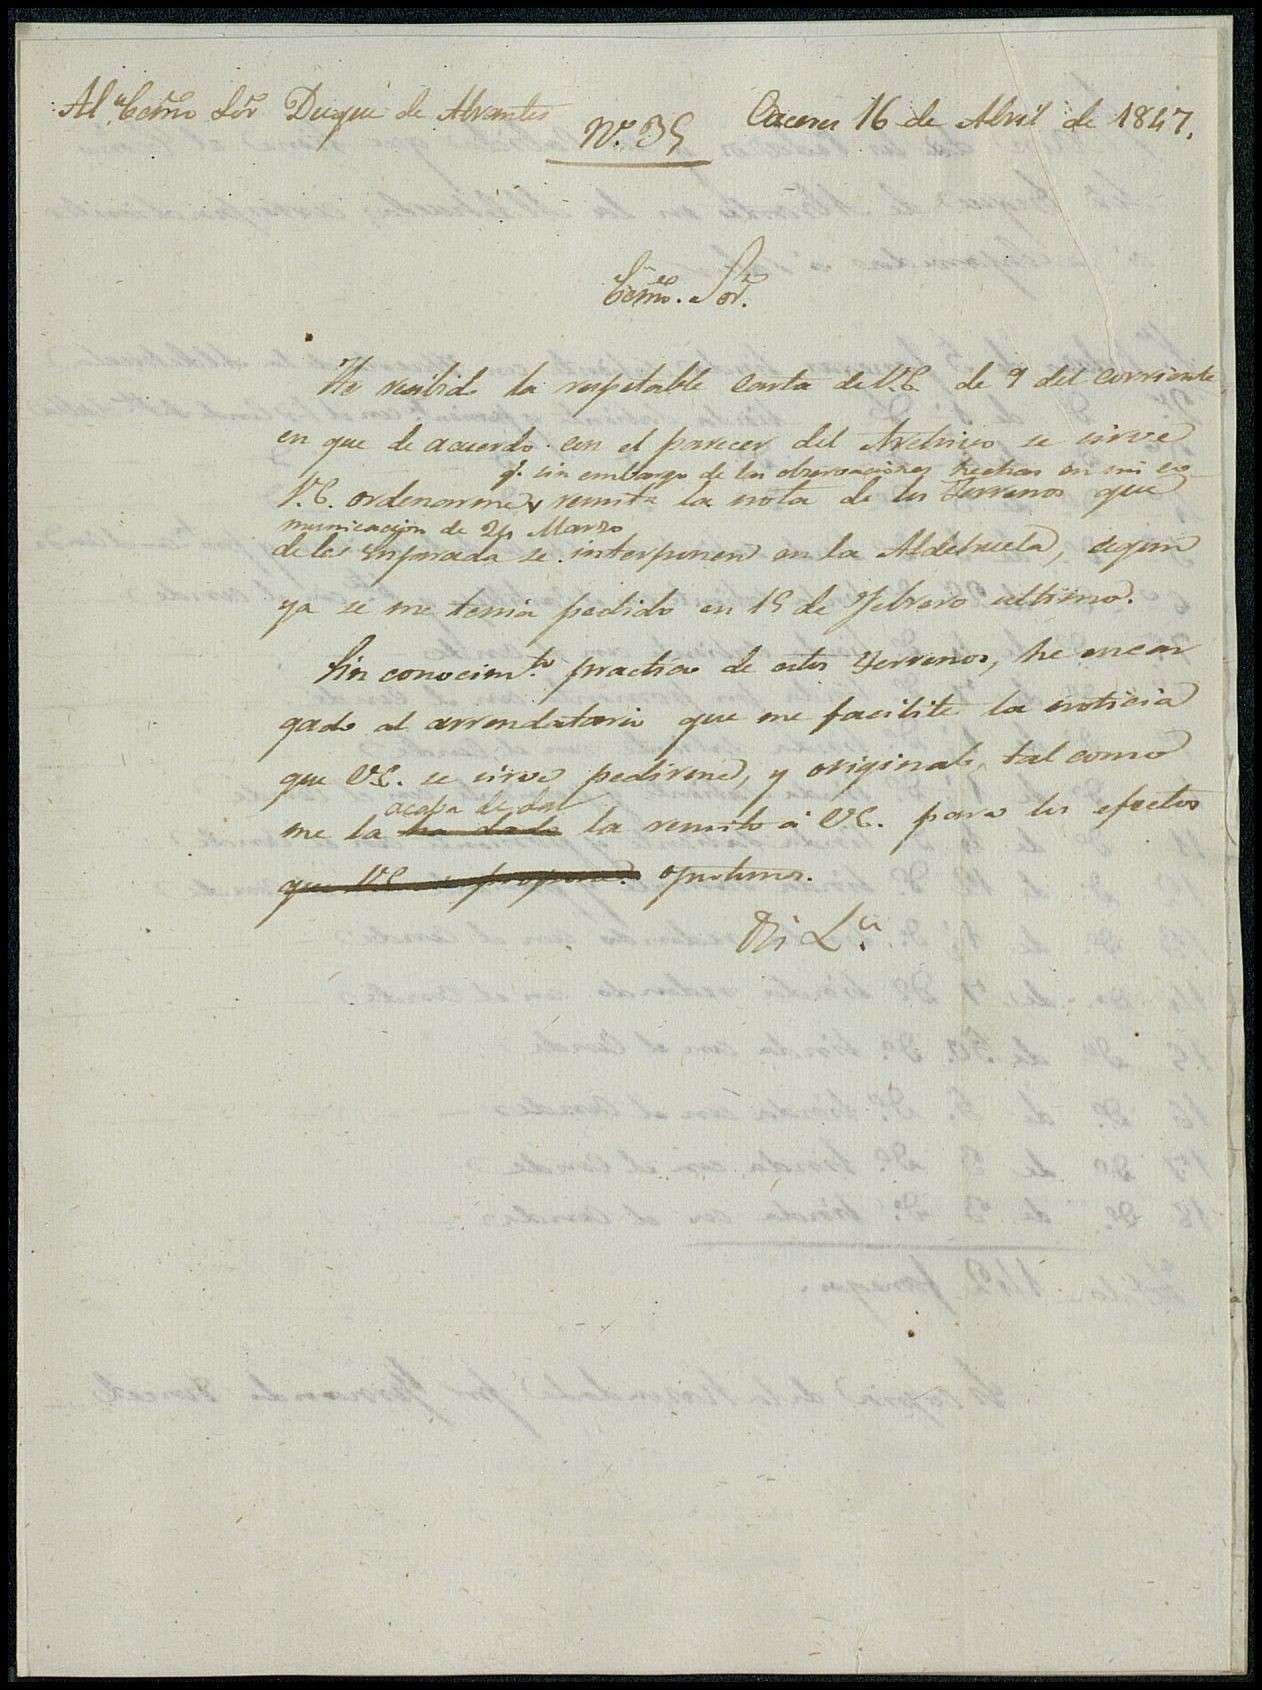 Al Ecsmo Sor Duque de Abrantes
Nº. 35
Caceres 16 de Abril de 1847.
Ecsmo. Sor.
He recibido la respetable carta de V.E. de 9 del corriente
en que de acuerdo con el parecer del Archivo se sirve
q.e sin embargo de las observaciones hechas en mi co
V.E. ordenarme remita la nota de los Terrenos que
municacion de 24 Marzo
de la se interponen en la Aldehuela, segun
ya se me tenia pedido en 15 de Febrero ultimo.
Sin conocim.to practico de estos Terrenos, he encar
gado al arrendatario que me facilite la noticia
que VE. se sirve pedirme, y original, tal como
acaba de dar
me la ha dado la remito á VE. para los efectos
que V.E. se propone. oportunos.